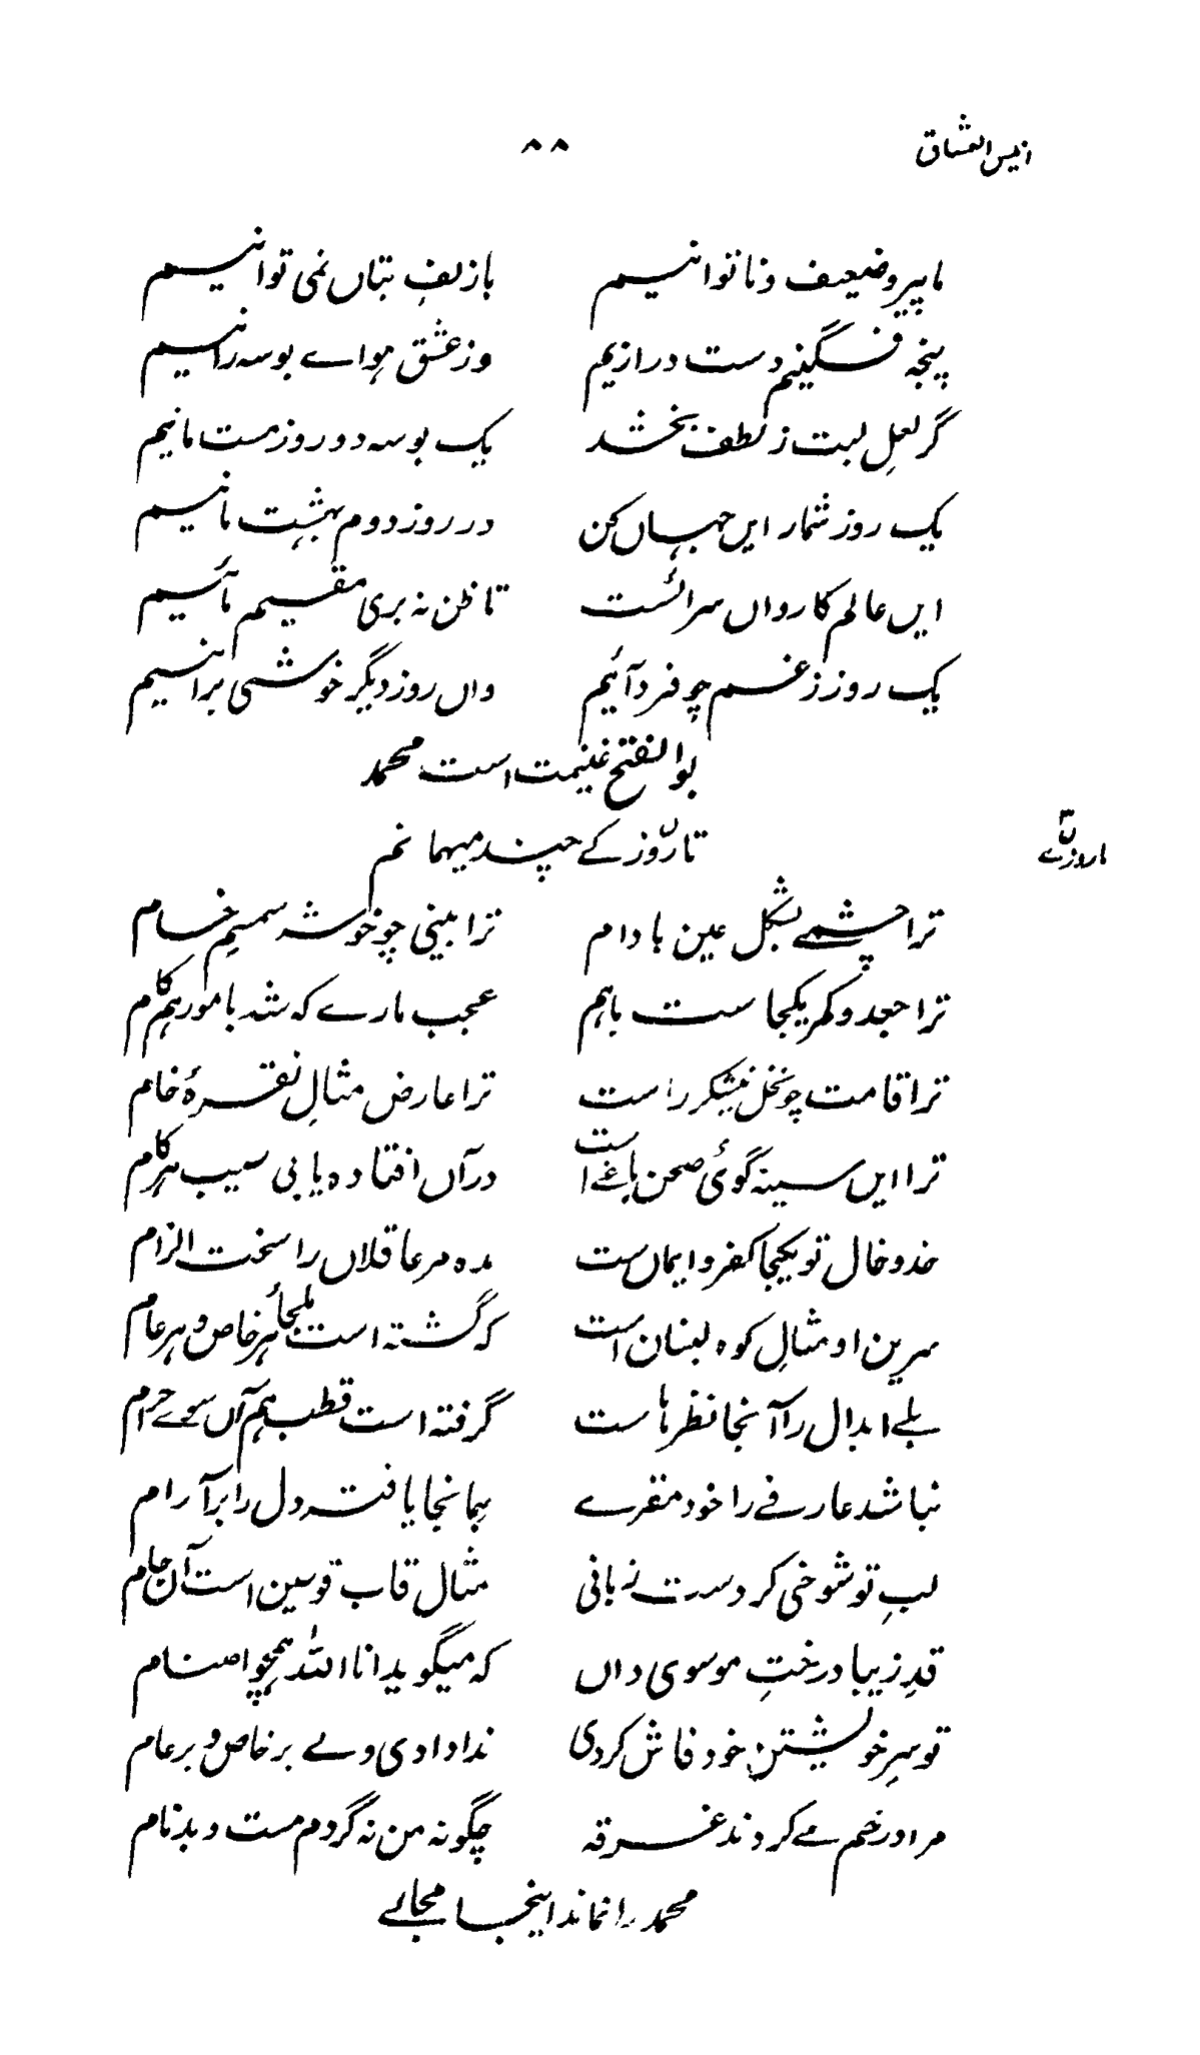 انیس العشاق ۸۸
ما پیر و ضعیف و ناتوانیم با زلفِ بتاں نمی توانیم
پنجہ فگنیم دست درازیم وز عشق ہواے بوسہ رانیم
گر لعلِ لبت ز لطف بخشد یک بوسہ دو روز مست مانیم
یک روز شمار ایں جہاں کن در روز دوم بہشت مانیم
ایں عالم کارواں سرائست تا ظن نہ بری مقیم مائیم
یک روز ز غم چو فرد آئیم واں روز دیگر خوشی برانیم
بوالفتح غنیمت است محمد
تا روز کے چند میہمانم
ترا چشمے بشکل عین بادام ترا بینی چو خوشہ سیمیم خام
ترا جعد و کمر یکجاست باہم عجب مارے کہ شد با مور ہم کام
ترا قامت چو نخل نیشکر راست ترا عارض مثالِ نقرۂ خام
ترا ایں سینہ گوئ صحن باغے است در آں افتادہ یابی سیب ہر کام
خد و خال تو یکجا کفر و ایماں ست مدہ مر عاقلاں را سخت الزام
سرین او مثالِ کوہ لبنان است کہ گشتہ است ملجأ ہر خاص و ہر عام
بلے ابدال را آنجا نظر ہاست گرفتہ است قطب ہم آں سوے حرام
نباشد عارفے را خود مقرے ہمانجا یافتہ دل را بر آرام
لبِ تو شوخی کردست زبانی مثال قاب قوسین است آں جام
قدِ زیبا درختِ موسوی داں کہ میگوید انا اللہ ہمچو اصنام
تو سرِ خویشتن خود فاش کردی ندا دادی ولے بر خاص و بر عام
مرا در خم مے کردند غرقہ چگونہ من نہ گردم مست و بدنام
محمد را نماند اینجا مجالے